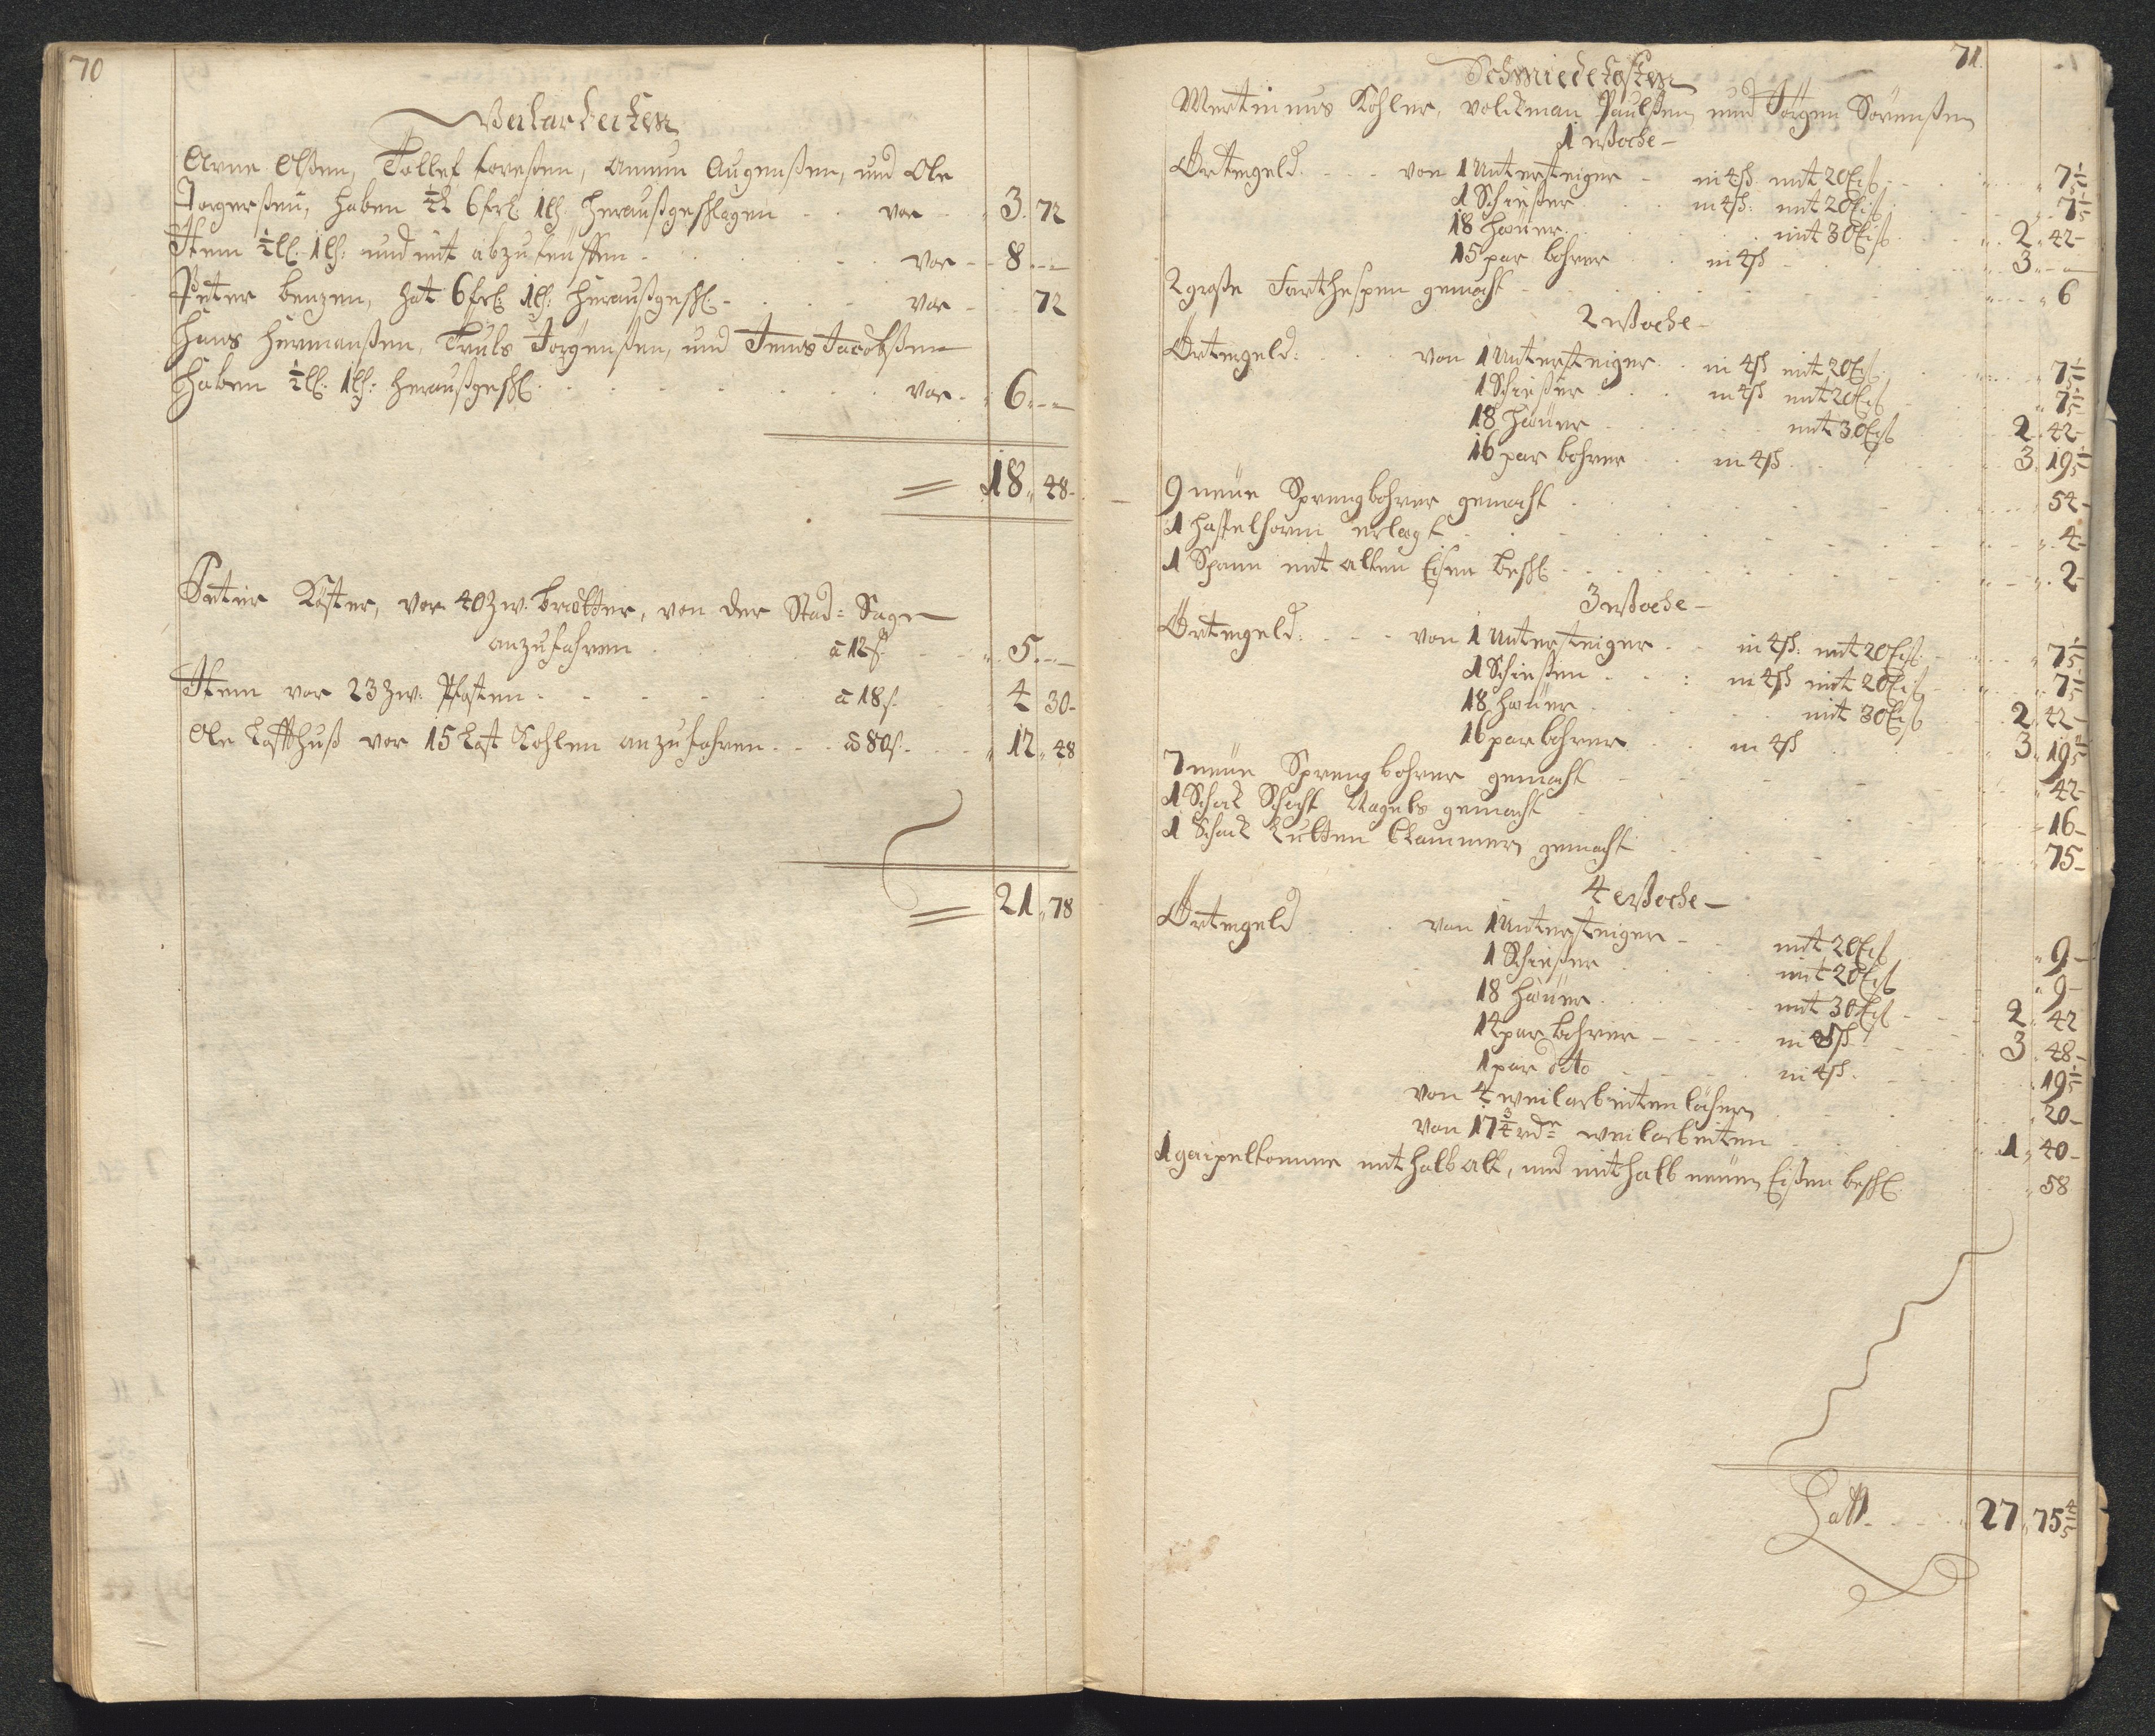 70
Weilarbeiten
Arne Olßen, Tollef Foreßen, Amun Augenßen, und Ole
Jorgerßen, haben ½ll 6frl: 1lß heraußgeschlagen . . vor . . 3. 72
Item ½ll. 1lß: und mit abzuseuffen . . . vor - - 8 . - -
Peter benzen, hat 6frl: 1lß: heraußgeschl. - . . . vor - . . 72
Hans Hermanßen, Truls Jörgenßen, und Jens Jacobßen
haben ½ll: 1lß: heraußgeschl. . . . vor . . 6 . - -
18 „ 48 -
Peter Köster, vor 40 Zw. bretter, von der Stad= Sage
anzufahren . . . a 12ß. . . 5. - -
Item vor 23 Zw: Pfosten - - - a 18ß. . . 4 30 -
Ole Loffthuß vor 15 Last Kohlen anzufahren . . . a 80ß. . . „ 12 „ 48
21 „ 78
71.
Schmiedekosten
Mertinnus Köhler, Volckman Paulßen, und Jörgen Sörenßen
1 Woche -
Örtergeld. . . . von 1 Untersteiger - in 4ß mit 20 Eiß . . 7 1/5
1 Schießer . . . in 4ß: mit 20 Eiß . . 7 1/5
18 Häuer . . . mit 30 Eiß . . 2 „ 42 -
15 par bohrer . . in 4ß . . . 3 . - -
2 große Farthespen gemacht - . . . 6
2 Woche -
Örtergeld: . . . von 1 Untersteiger . . in 4ß mit 20 Eiß . . 7 1/5
1 Schießer . . . in 4ß mit 20 Eiß . . 7 1/5
18 Häuer . . . mit 30 Eiß . . 2 . 42 -
16 par bohrer . . in 4ß . . . 3. 19 1/5
9 neue Sprengbohrer gemacht . . . 54 -
1 Haspelhorn erlegt . . . 4 -
1 Spann mit alten Eisen beschl. . . . 2 -
3 Woche -
Örtergeld: - - - von 1 Untersteiger . . in 4ß: mit 20 Eiß . . 7 1/5
1 Schießer . . : in 4ß mit 20 Eiß . . 7 1/5
18 Häuer . . . mit 30 Eiß . . 2 „ 42 -
16 par bohrer . . in 4ß . . . 3 „ 19 1/5
7 neue Sprengbohrer gemacht . . . 42 -
1 Schock Schacht Nagels gemacht . . . 16 -
1 Schock Lutten Klammern gemacht . . . 75 -
4 Woche -
Örtergeld . . . von 1 Untersteiger - . mit 20 Eiß . . 9 -
1 Schießer . . . mit 20 Eiß . . 9 -
18 Häuer . . . mit 30 Eiß - - - 2 „ 42
14 par bohrer - - - in 5ß . . 3 . 48 -
1 par dito . . . in 4ß. . . 19 1/5
von 4 weilarbeiten löchern . . . 20 -
von 17¾ rdr weilarbeiten . . . 1 „ 40 -
1 gaipeltonne mit halb alt, und mit halb neuen Eißen beschl. . . „ 58
Latt - - - „ 27 „ 75 4/5